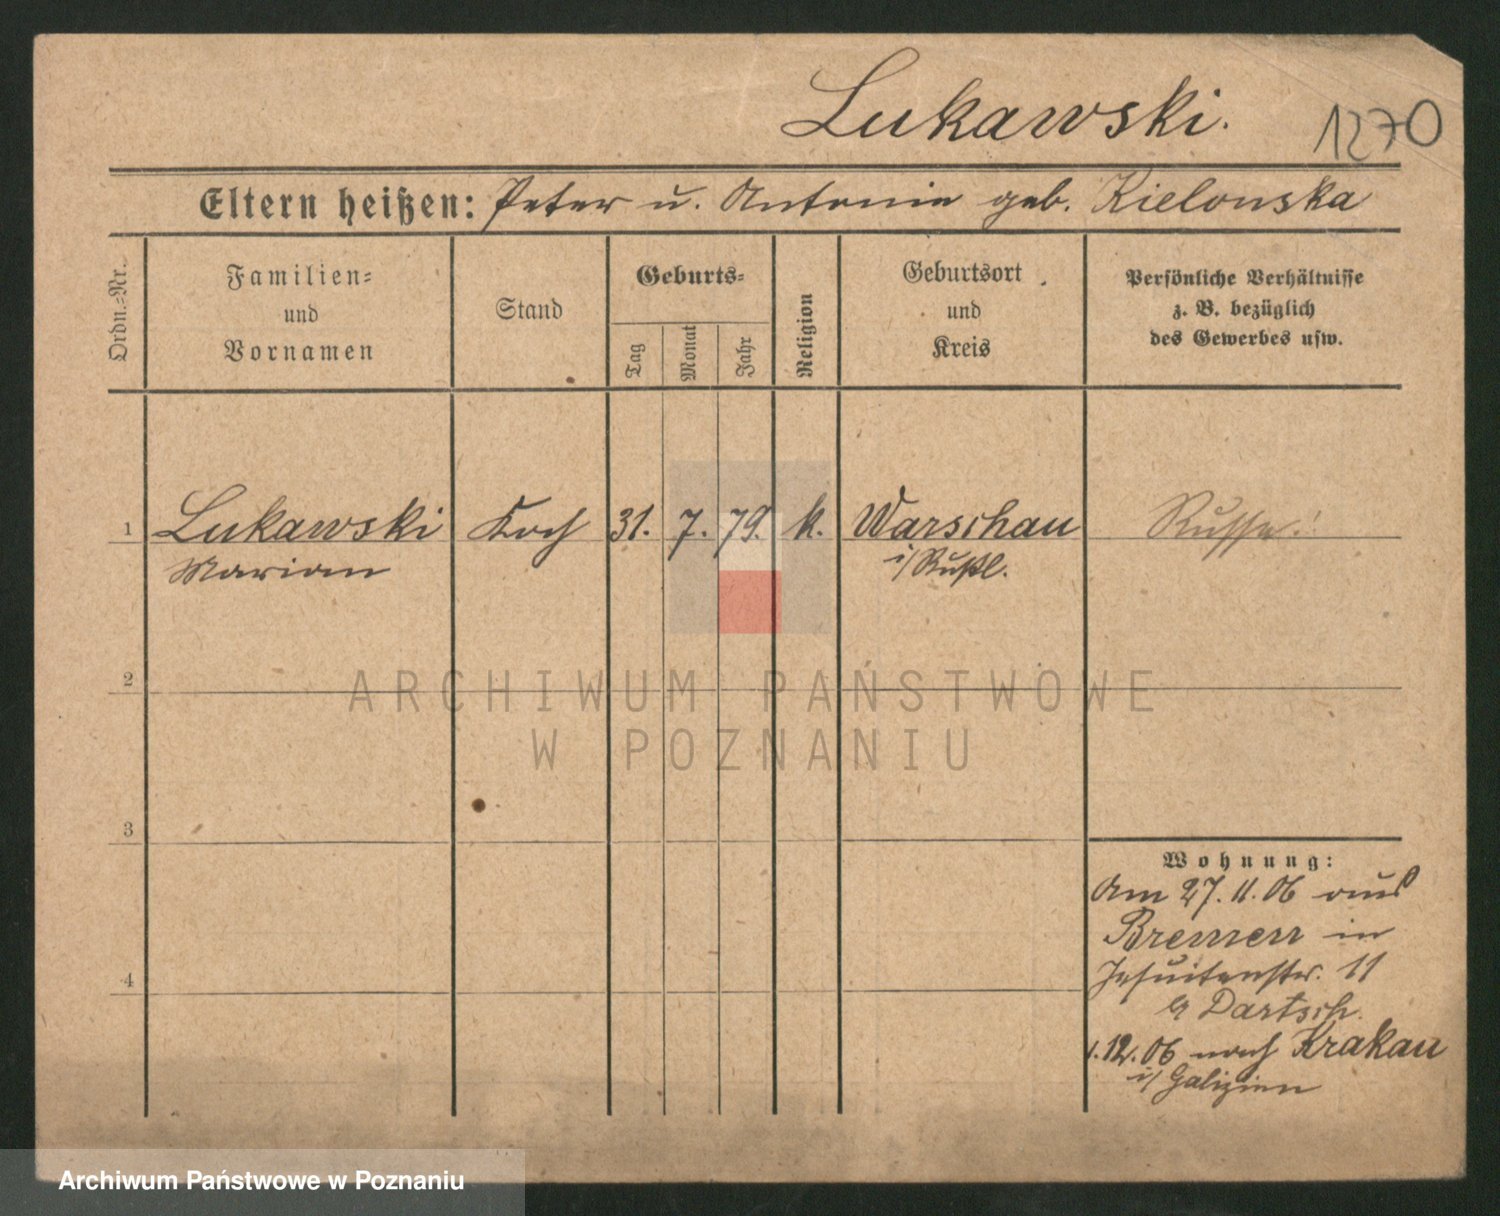 Lukawski.
1270
Eltern heißen: Peter u. Antonie geb. Kielonska
Ordn.-Nr.
Familien-
und
Vornamen
Stand
Geburts-
Tag
Monat
Jahr
Religion
Geburtsort
und
Kreis
Persönliche Verhältnisse
z. B. bezüglich
des Gewerbes usw.
1 Lukawski Koch 31. 7. 79. k. Warschau Russe!
Marian i/Rußl.
2
ARCHIWUM PAŃSTWOWE
W POZNANIU
3
Wohnung:
Am 27.11.06 aus
Bremen in
Jesuitenstr. 11
4
Dartsch.
1.12.06 nach Krakau
i/Galizien
Archiwum Państwowe w Poznaniu